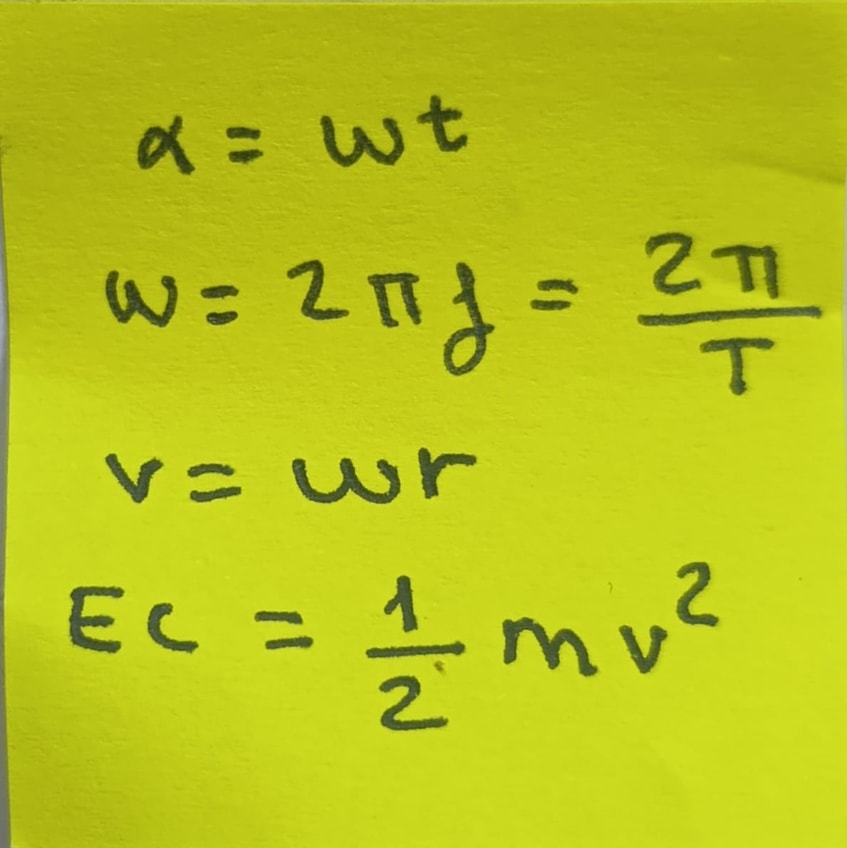 α = wt
ω = 2πf = 2π/T
v = ωr
EC = 1/2 mv²